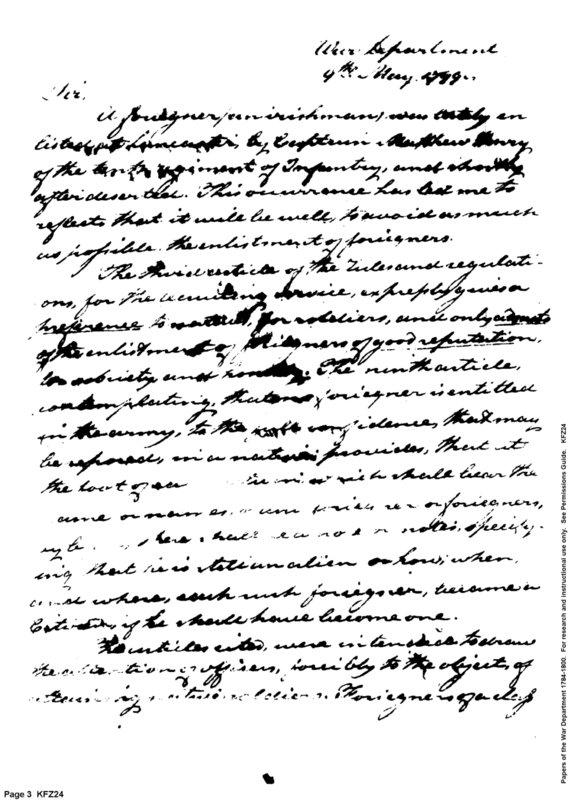 War Department
9th May 1799.
Sir,
A foreigner (an irishman) was lately en
listed at Lancaster, by Captain Matthew Henry
of the tenth regiment of Infantry, and shortly
after deserted. This occurrence has led me to
reflect that it will be well, to avoid as much
as possible the enlistment of foreigners.
The third article of the rules and regulati-
ons, for the recruiting service, expressly gives a
preference to natives, for soldiers, and only admits
of the enlistment of foreigners of good reputation,
for sobriety and honesty. The ninth article,
contemplating, that no foreigner is entitled
in the army, to the confidence, that may
be reposed, in a native provides, that at
the foot of which shall bear the
name or names foreigner or foreigners,
there shall be a note or notes, specify-
ing that he is still an alien or how, when,
and where, each such foreigner, became a
Citizen if he shall have become one.
The articles cited, were intended to draw
the attention of officers, forcibly to the objects of
obtaining native soldiers. Foreigners of a class
Page 3 KFZ24
Papers of the War Department 1784-1800. For research and instructional use only. See Permissions Guide. KFZ24